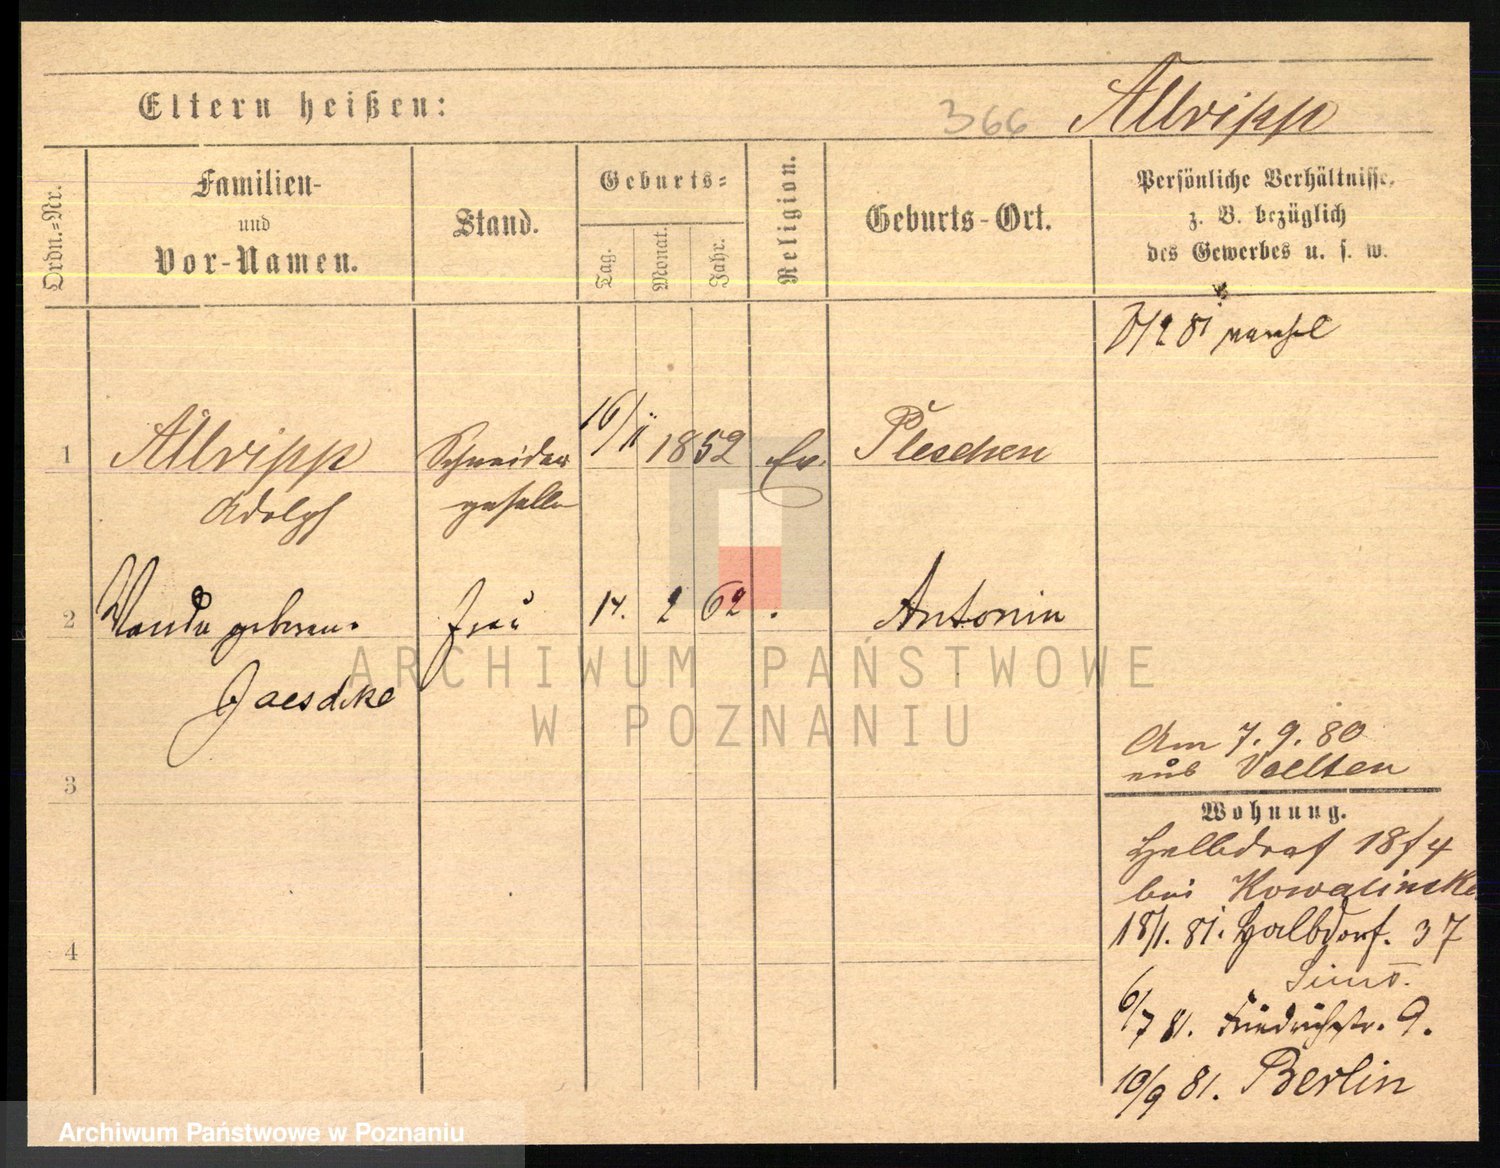 Eltern heißen:
366 Allripp
Ordn.-Nr.
Familien-
und
Vor-Namen.
Stand.
Geburts-
Tag.
Monat.
Jahr.
Religion.
Geburts-Ort.
Persönliche Verhältnisse,
z. B. bezüglich
des Gewerbes u. s. w.
1 Allripp Schneider 16/11 1852 Ev. Pleschen
Adolph geselle
2 Wanda geborene Frau 14. 2 62 . Antonin
Jaeschke
ARCHIWUM PAŃSTWOWE
W POZNANIU
Am 7. 9. 80
aus
3
Wohnung.
Halbdorf 18/4
bei Kowalinski
18/1. 81. Halbdorf. 37
4
6/7 81. Friedrichstr. 9.
10/9 81. Berlin
Archiwum Państwowe w Poznaniu